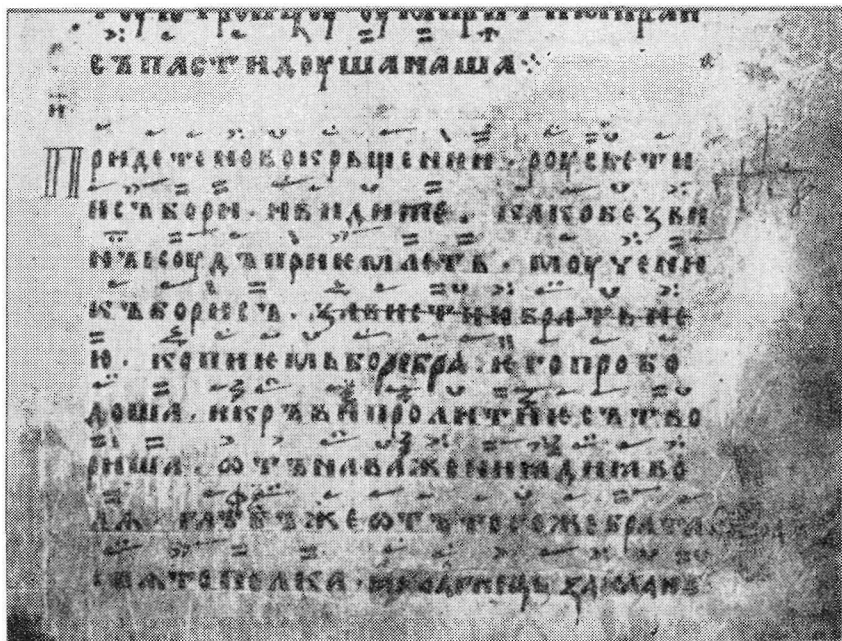 съпастидоушанаша
н
Придетеновокрьщении · роусьсти
исъбори · ивидите · како безви
нъ соудъ приѥмлеть · моучени
къ борисъ · завистию братьнѥ
ю · копиѥмь бо ребра ѥго пробо
доша · и кръви пролитиѥ сътво
риша · отъ наважения диꙗво
лѧ · глѣбъ же отъ того же брата
свѧтополка · ꙗко агньць закланъ